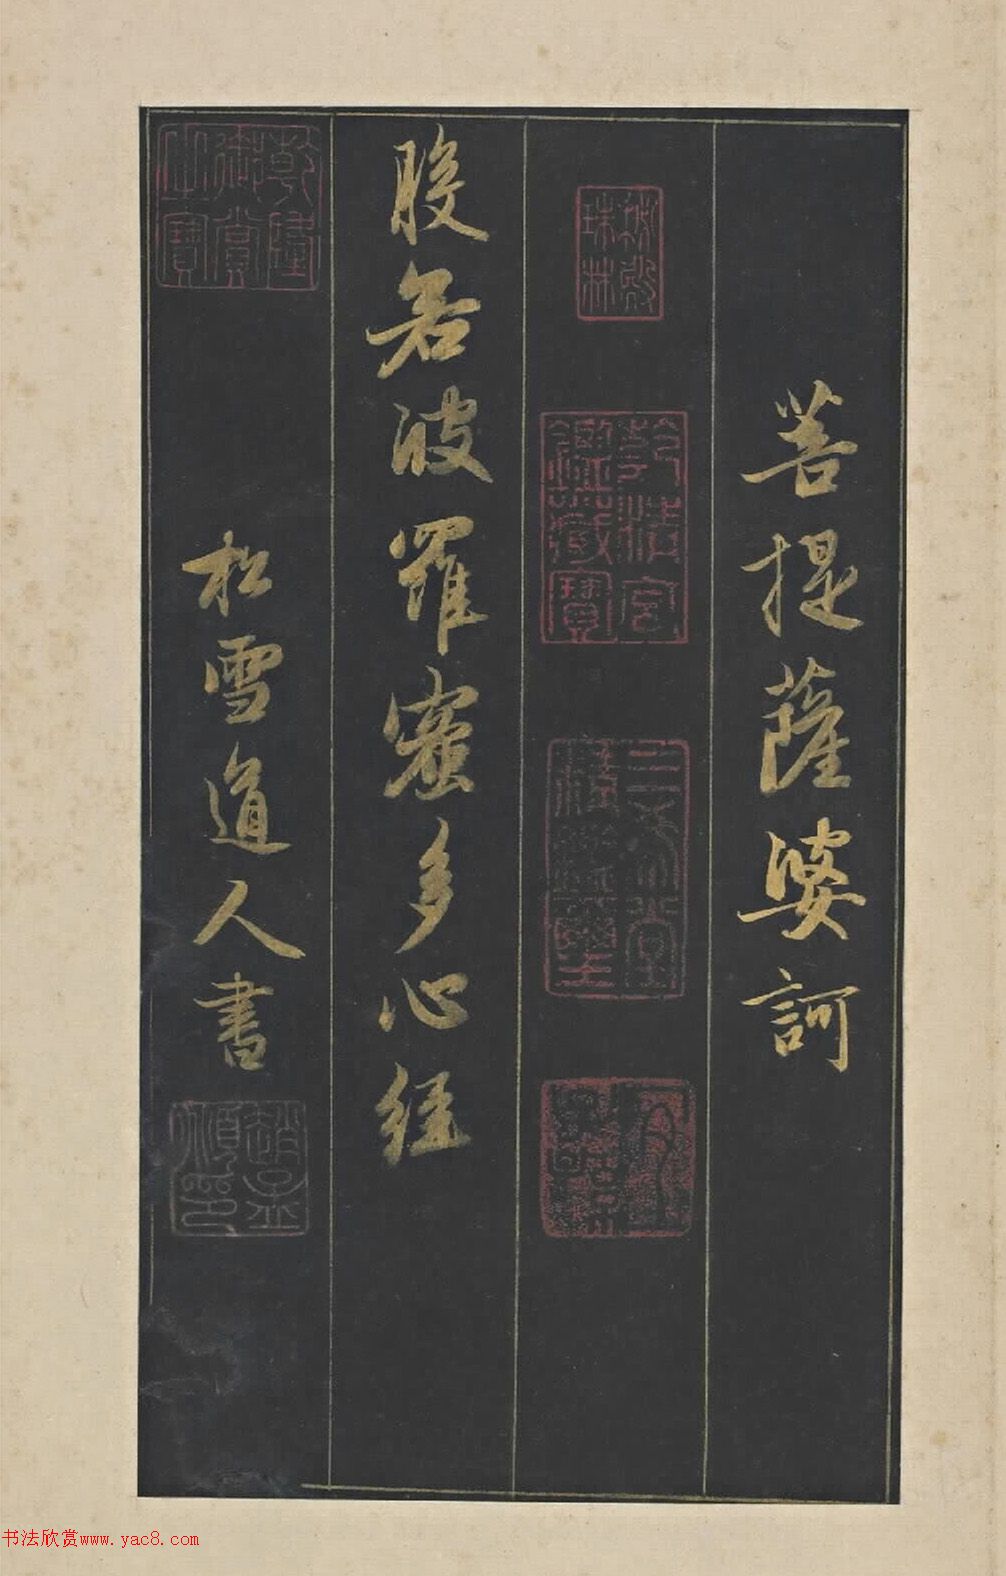 菩提薩婆訶
秘殿珠林
乾清宮鑑藏寶
三希堂精鑑璽
般若波羅蜜多心經
乾隆御賞之寶
松雪道人書
趙孟頫印
书法欣赏www.yac8.com